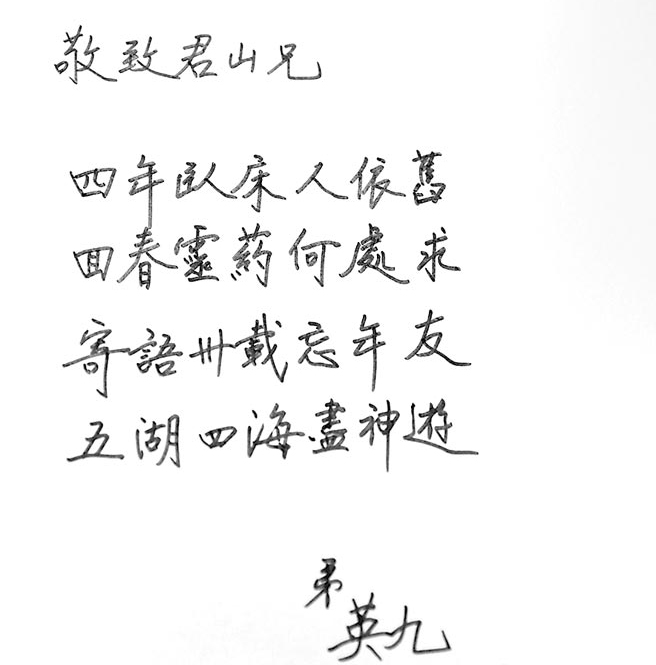 敬致君山兄
四年臥床人依舊
回春靈葯何處求
寄語卅載忘年友
五湖四海盡神遊
弟
英九